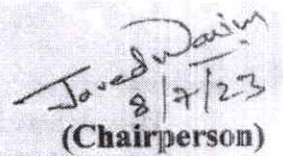 Javed
8/7/23
(Chairperson)